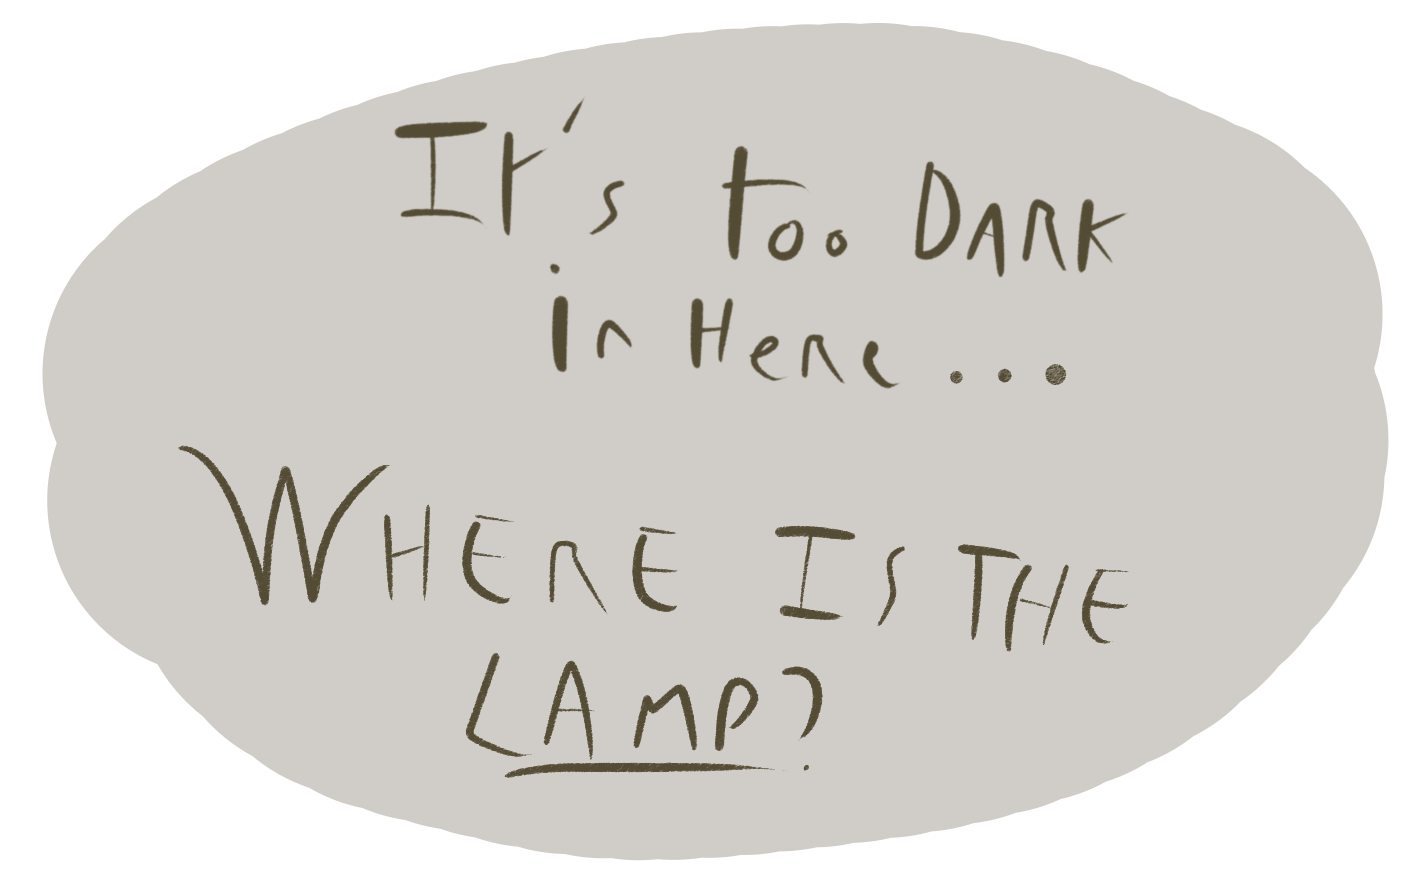 It's too DARK
in Here...
WHERE IS THE
LAMP?